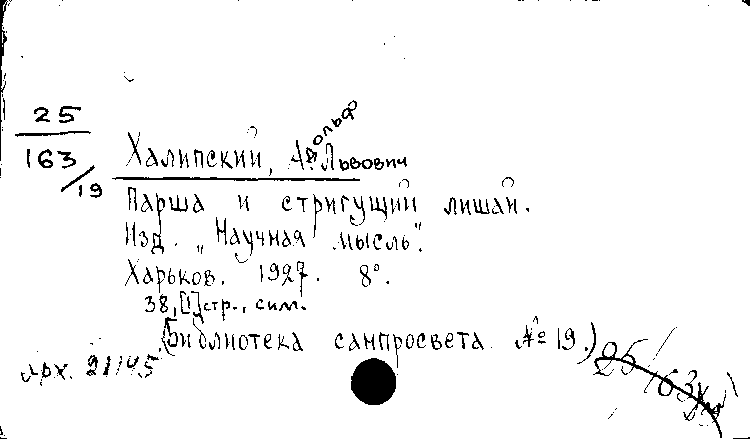 25
163
/19
Халипский, Адольф Львович
Парша и стригущий лишай.
Изд. „Научная мысль".
Харьков. 1927. 8°.
38, [1] стр., с илл.
(Библиотека санпросвета № 19.)
Арх. 21145
25/163